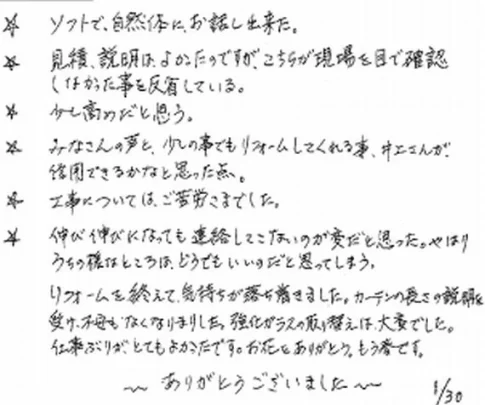 ☆ ソフトで、自然体に、お話し出来た。
☆ 見積、説明は、よかったのですが、こちらが現場を目で確認
しなかった事を反省している。
☆ 少し高めだと思う。
☆ みなさんの声と、少しの事でもリフォームしてくれる事、井上さんが、
信用できるかなと思った点。
☆ 工事については、ご苦労さまでした。
☆ 伸び伸びになっても連絡してこないのが変だと思った。やはり
うちの様なところは、どうでもいいのだと思ってしまう。
リフォームを終えて、気持ちが落ち着きました。カーテンの長さの説明を
受け、不安もなくなりました。強化ガラスの取り替えは、大変でした。
仕事ぶりが、とてもよかったです。お花とありがとう。もう春です。
～ ありがとうございました ～ 1/30